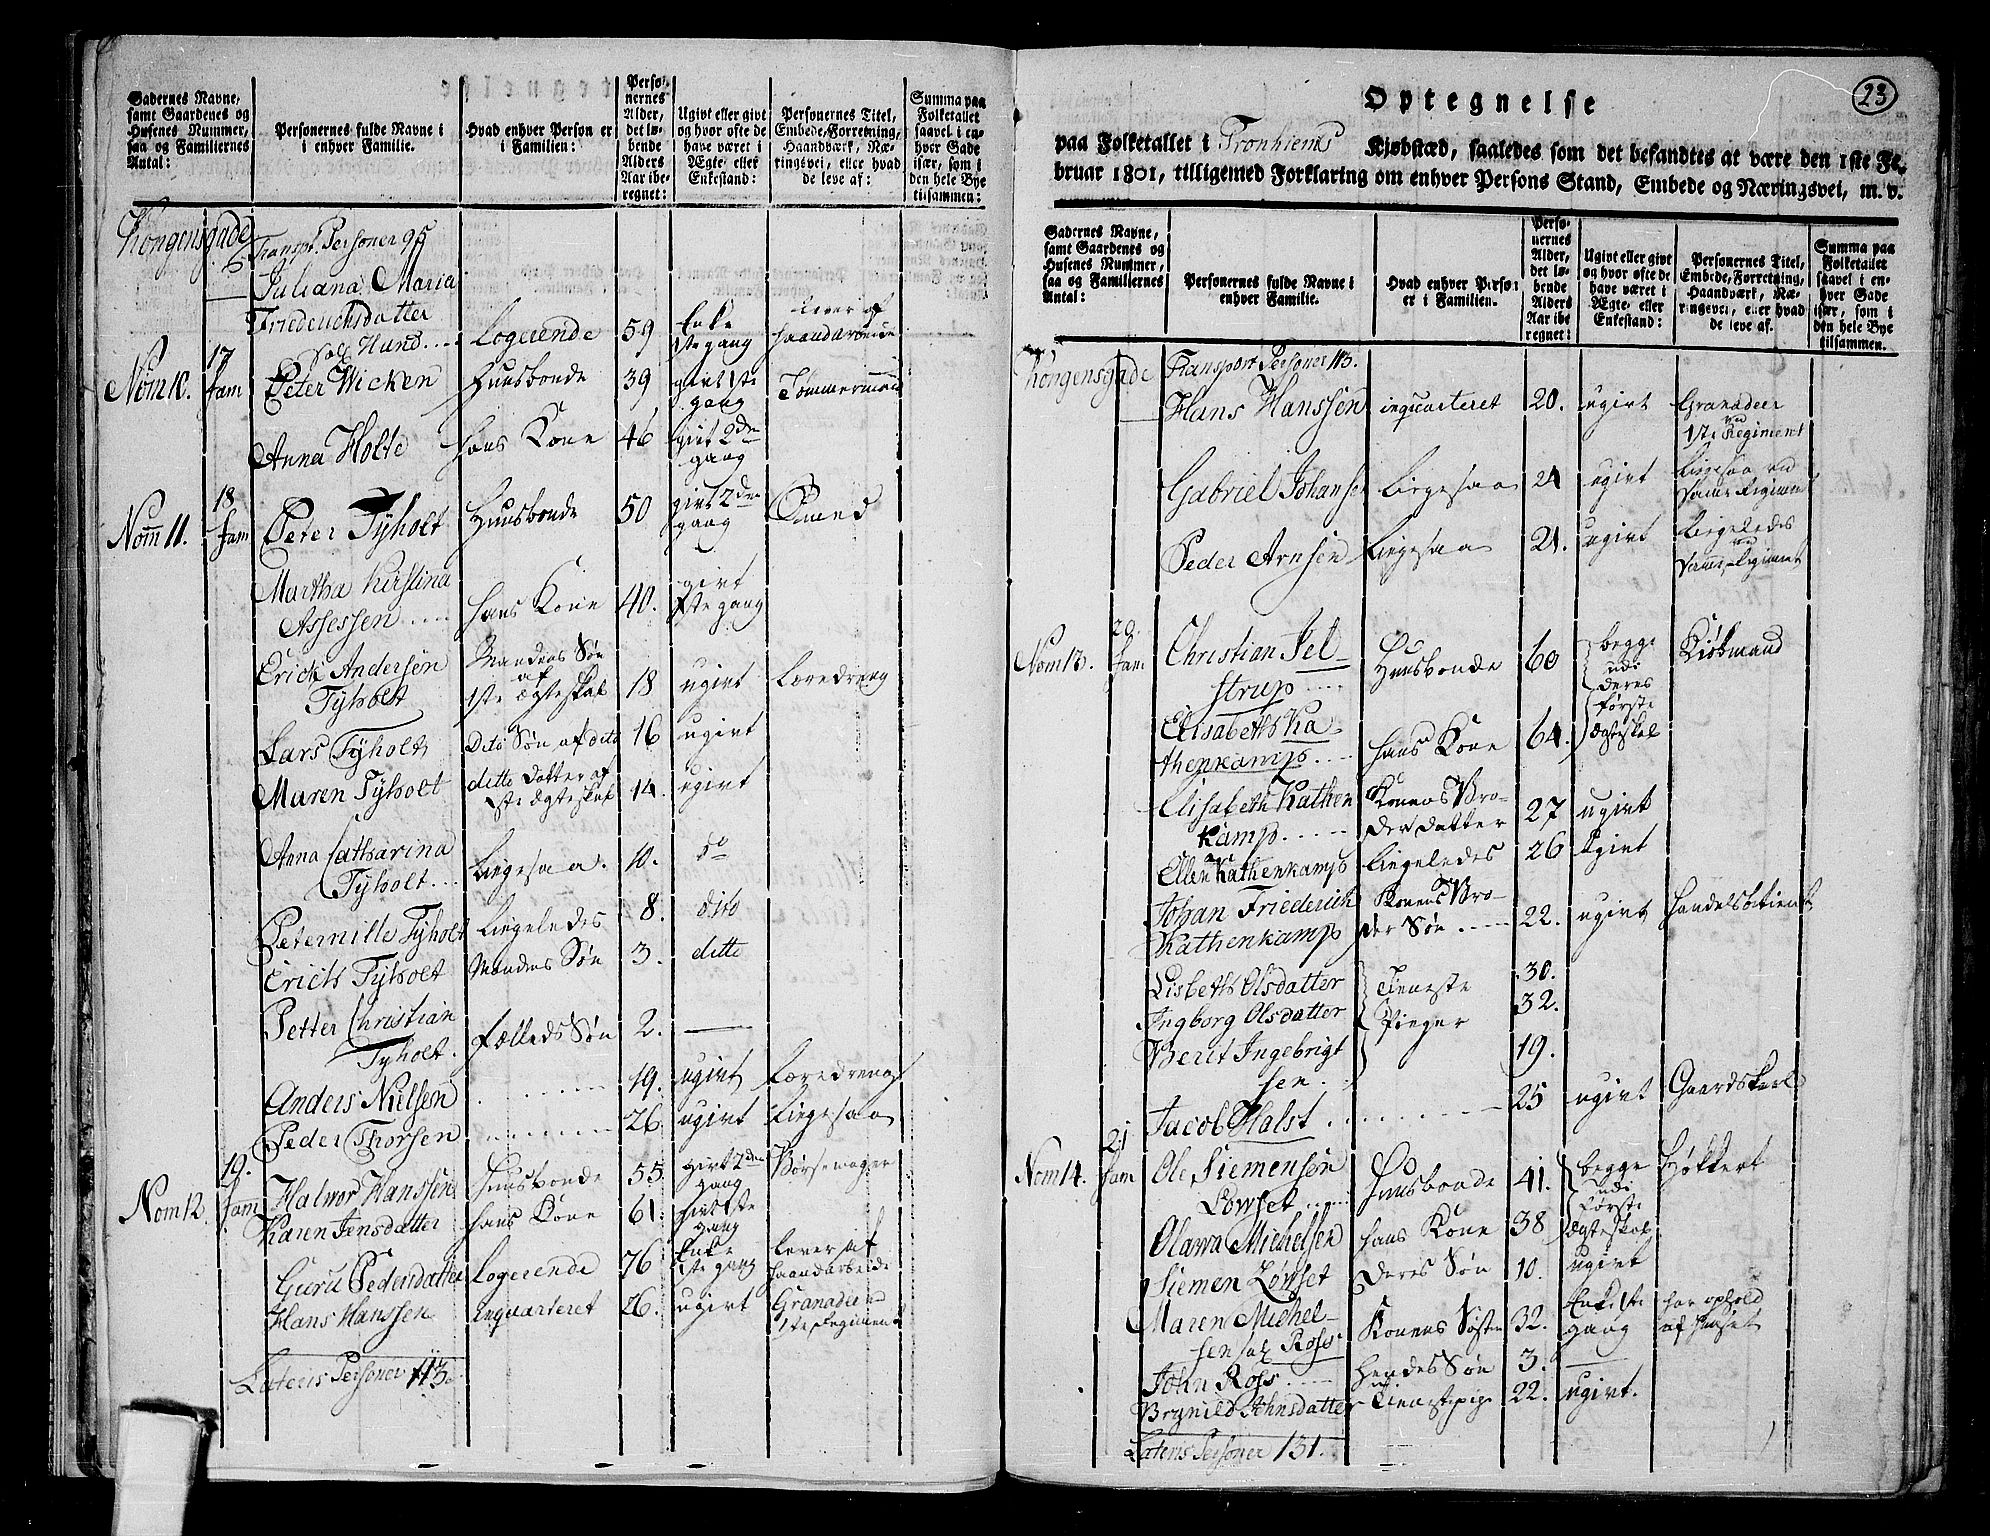 Gadernes Navne,
samt Gaardenes og
Husenes Nummer,
saa og Familiernes
Antal:
Personernes fulde Navne i
i enhver Familie.
Hvad enhver Person er
i Familien:
Perso-
nernes
Alder,
det lø-
bende
Alders
Aar ibe-
regnet:
Ugivt eller givt
og hvor ofte de
have været i
Ægte- eller
Enkestand:
Personernes Titel,
Embede, Forretning,
Haandværk, Næ-
ringsvei, eller hvad
de leve af:
Summa paa
Folketallet
saavel i en-
hver Gade
især, som i
den hele Bye
tilsammen:
Kongensgade Transpt. Personer 95
Juliana Maria
Friederichsdatter
Sal Hund .... Logerende 59 Enke 1ste gang lever af haandarbeide
Nom 10. 17 Fam Peter Wicken Huusbonde 39 givt 1ste gang Tømmermand
Anna Holte hans Kone 46 givt 2den gang
Nom 11. 18 Fam Peter Tyholt Huusbonde 50 givt 2den gang Smed
Martha Kirstina
Assessen ..... hans Kone 40. givt 1ste gang
Erich Andersen
Tyholt Mandens Søn af 1ste Ægteskab 18 ugivt Læredreng
Lars Tyholt Dito Søn af dito 16 ugivt
Maren Tyholt ditto Datter af 1ste Ægteskab 14. ugivt
Anna Catharina
Tyholt... Ligesaa. 10. do
Peternille Tyholt Ligeledes 8. dito
Erich Tyholt Mandens Søn 3. ditto
Petter Christian
Tyholt. fælleds Søn 2. —
Anders Nielsen 19. ugivt Læredreng
Peder Thorsen 26. ugivt Ligesaa
Nom 12. 19. Fam Halwor Hanssen Huusbonde 55. givt 2den gang Børsemager
Karen Jensdatter hans Kone 61. givt 1ste gang
Guru Pedersdatter Logerende 76 Enke 1ste gang lever af haandarbeide
Hans Hanssen inquarteret 26. ugivt Granadeer ved 1ste Regiment
Lateris Personer 113.
23
Optegnelse
paa Folketallet i Tronhiems Kjøbstæd, saaledes som det befandtes at være den 1ste Fe-
bruar 1801, tilligemed Forklaring om enhver Persons Stand, Embede og Næringsvei, m. v.
Gadernes Navne,
samt Gaardenes og
Husenes Nummer,
saa og Familiernes
Antal:
Personernes fulde Navne i
enhver Familie.
Hvad enhver Person
er i Familien.
Perso-
nernes
Alder,
det lø-
bende
Alders
Aar ibe-
regnet:
Ugivt eller givt
og hvor ofte de
have været i
Ægte- eller
Enkestand:
Personernes Titel,
Embede, Forretning,
Haandværk, Næ-
ringsvei, eller hvad
de leve af.
Summa paa
Folketallet
saavel i en-
hver Gade
især, som i
den hele Bye
tilsammen.
Kongensgade Transport Personer 113.
Hans Hanssen inquarteret 20. ugivt Granadeer ved 1ste Regiment
Gabriel Johansen Ligesaa 24 ugivt Ligesaa ved samme Regiment
Peder Arnsen Ligesaa 21. ugivt Ligeledes ved samme Regiment
Nom 13. 20. Fam Christian Jel-
strup .... Huusbonde 60 begge udi deres første Ægteskab Kiøbmand
Elisabeth Ka-
thenkamp.... hans Kone 64.
Elisabeth Kathen
kamp..... Konens Bro-
der datter 27 ugivt
Ellen Kathenkamp Ligeledes 26 Ugivt
Johan Friederich
Kathenkamp Konens Bro-
der Søn ..... 22. ugivt Handelsbetient
Lisbeth Olsdatter Tieneste 30.
Ingborg Olsdatter Piger 32.
Berit Ingebrigt
sen. 19.
Jacob Halst ....... 25 ugivt Gaardskarl
Nom 14. 21 Fam Ole Siemensen
Lowset .... Huusbonde 41. begge udi første Ægteskab Høkkert
Olawa Michelsen hans Kone 38
Siemen Løwset Deres Søn 10. ugivt
Maren Michel-
sen sal Ross Konens Søster 32. Enke 1ste gang har ophold af huuset
John Ross Hendes Søn 3. —
Brynild Johnsdatter Tienestepige 22. ugivt.
Lateris Personer 131.